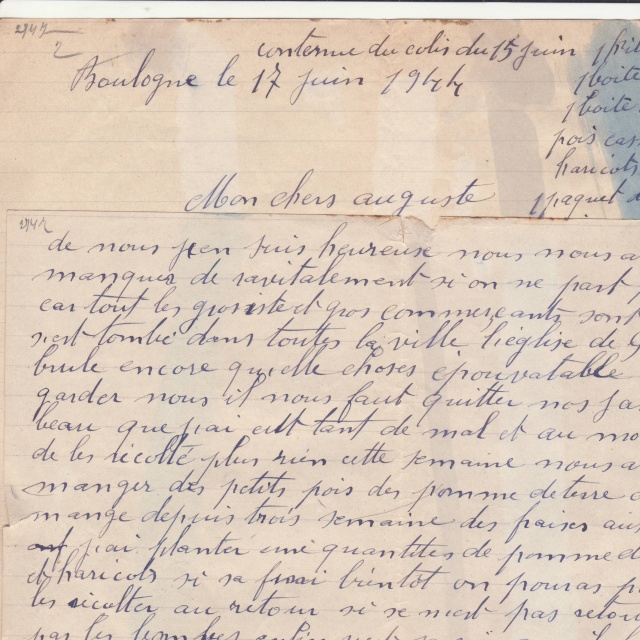 contenue du colis du 15 juin
Boulogne le 17 juin 1944
1 boite
1 boite
pois cas
haricots
Mon chers auguste 1 paquet
de nous jen suis heureuse nous nous a
manquer de ravitalement si on ne part
car tout les grossiste et gros commerçants sont
sest tombé dans toutes la ville l'église de
brule encore quelle choses épouvatable
garder nous il nous faut quitter nos ja
beau que j'ai eut tant de mal et au mo
de les récolté plus rien cette semaine nous a
manger des petits pois des pomme de terre
mange depuis trois semaine des fraises aus
j'ai planter une quantites de pomme d
et haricots si sa finai bientot on pouras p
les récolter au retour si se nest pas retou
par les bombes enfin